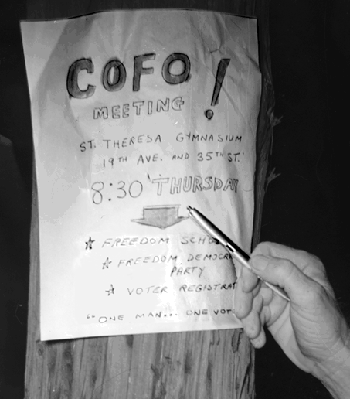 COFO!
MEETING
ST. THERESA GYMNASIUM
19TH AVE. AND 35TH ST.
8:30 THURSDAY
☆ FREEDOM SCHO
☆ FREEDOM DEMOCRA
PARTY
☆ VOTER REGISTRAT
"ONE MAN... ONE VOT